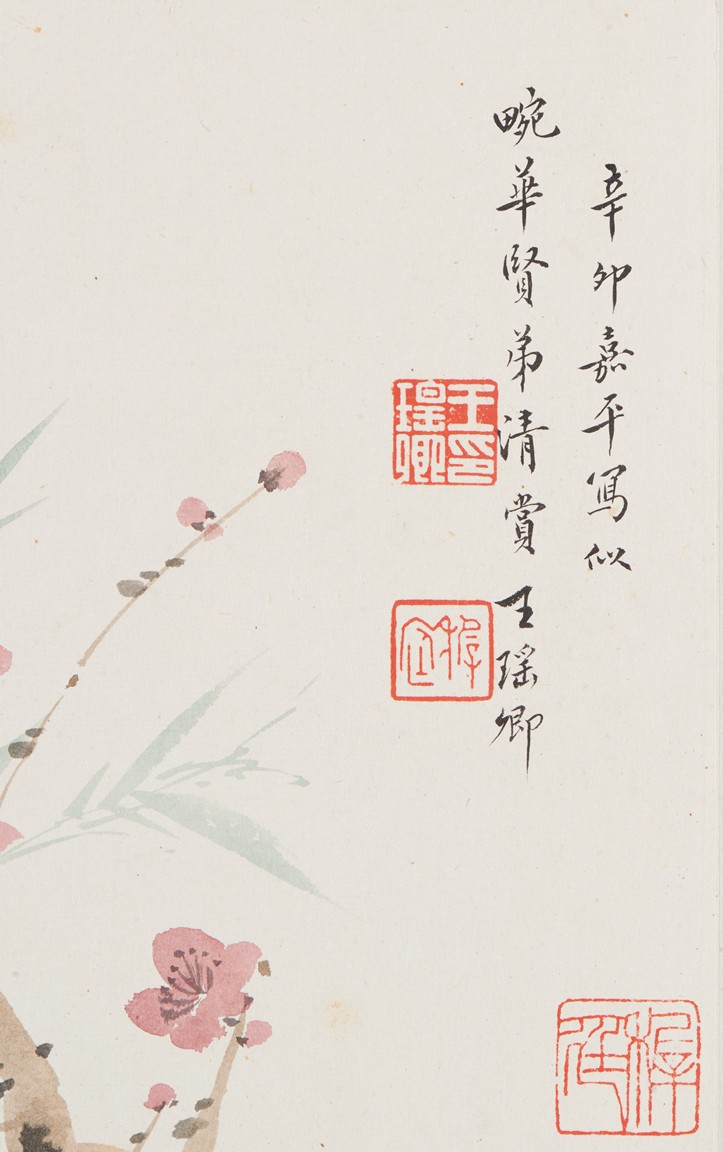 辛卯嘉平寫似
畹華賢弟清賞 王瑶卿
王瑤卿印